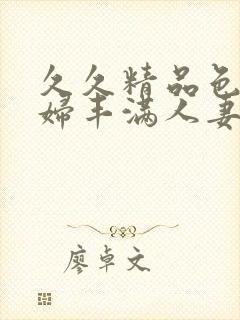 久久精品色
婦丰满人妻
廖卓文